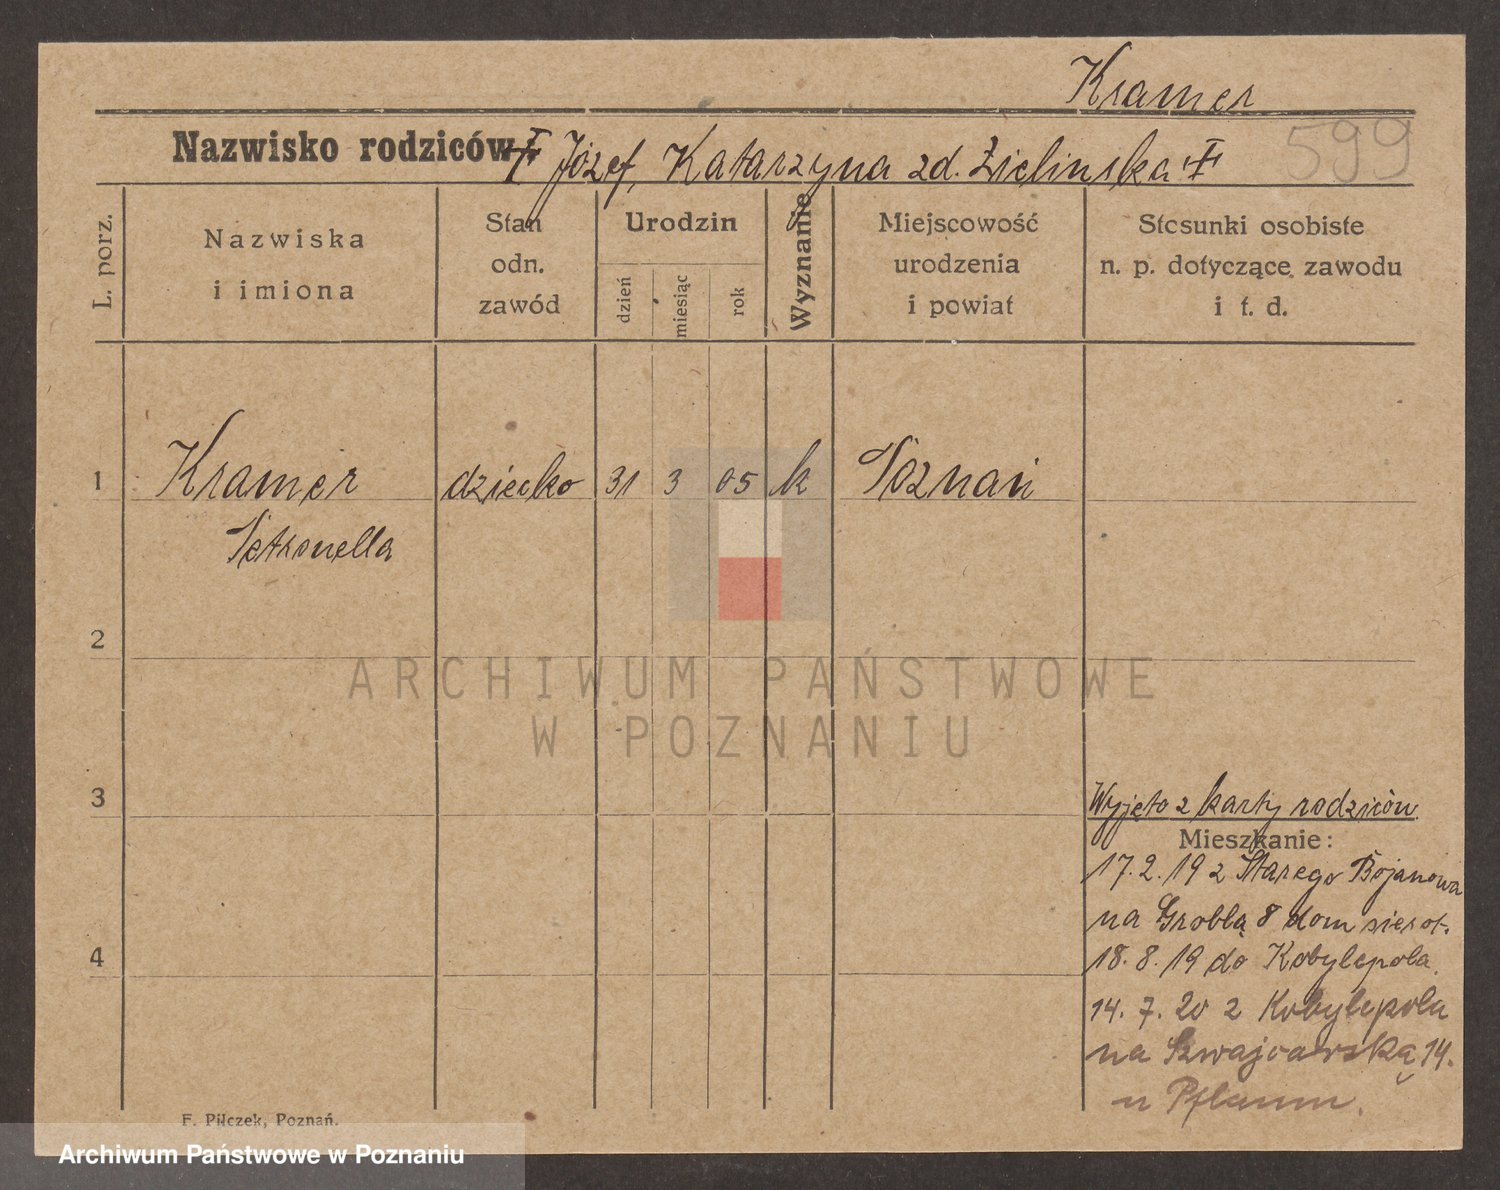 Kramer
599
Nazwisko rodziców Józef, Katarzyna zd. Zielinska
L. porz.
Nazwiska i imiona
Stan odn. zawód
Urodzin
dzień
miesiąc
rok
Wyznanie
Miejscowość urodzenia i powiat
Stosunki osobiste n. p. dotyczące zawodu i t. d.
1 Kramer dziecko 31 3 05 k Poznań
Petronella
2
3
4
Wyjęto z karty rodziców.
Mieszkanie:
17.2.19 z Starego Bojanowa
na Groblą 8 dom sierot.
18.8.19 do Kobylepola.
14.7.20 z Kobylepola
na Szwajcarską 14.
u Pflaum.
F. Pilczek, Poznań.
ARCHIWUM PAŃSTWOWE
W POZNANIU
Archiwum Państwowe w Poznaniu